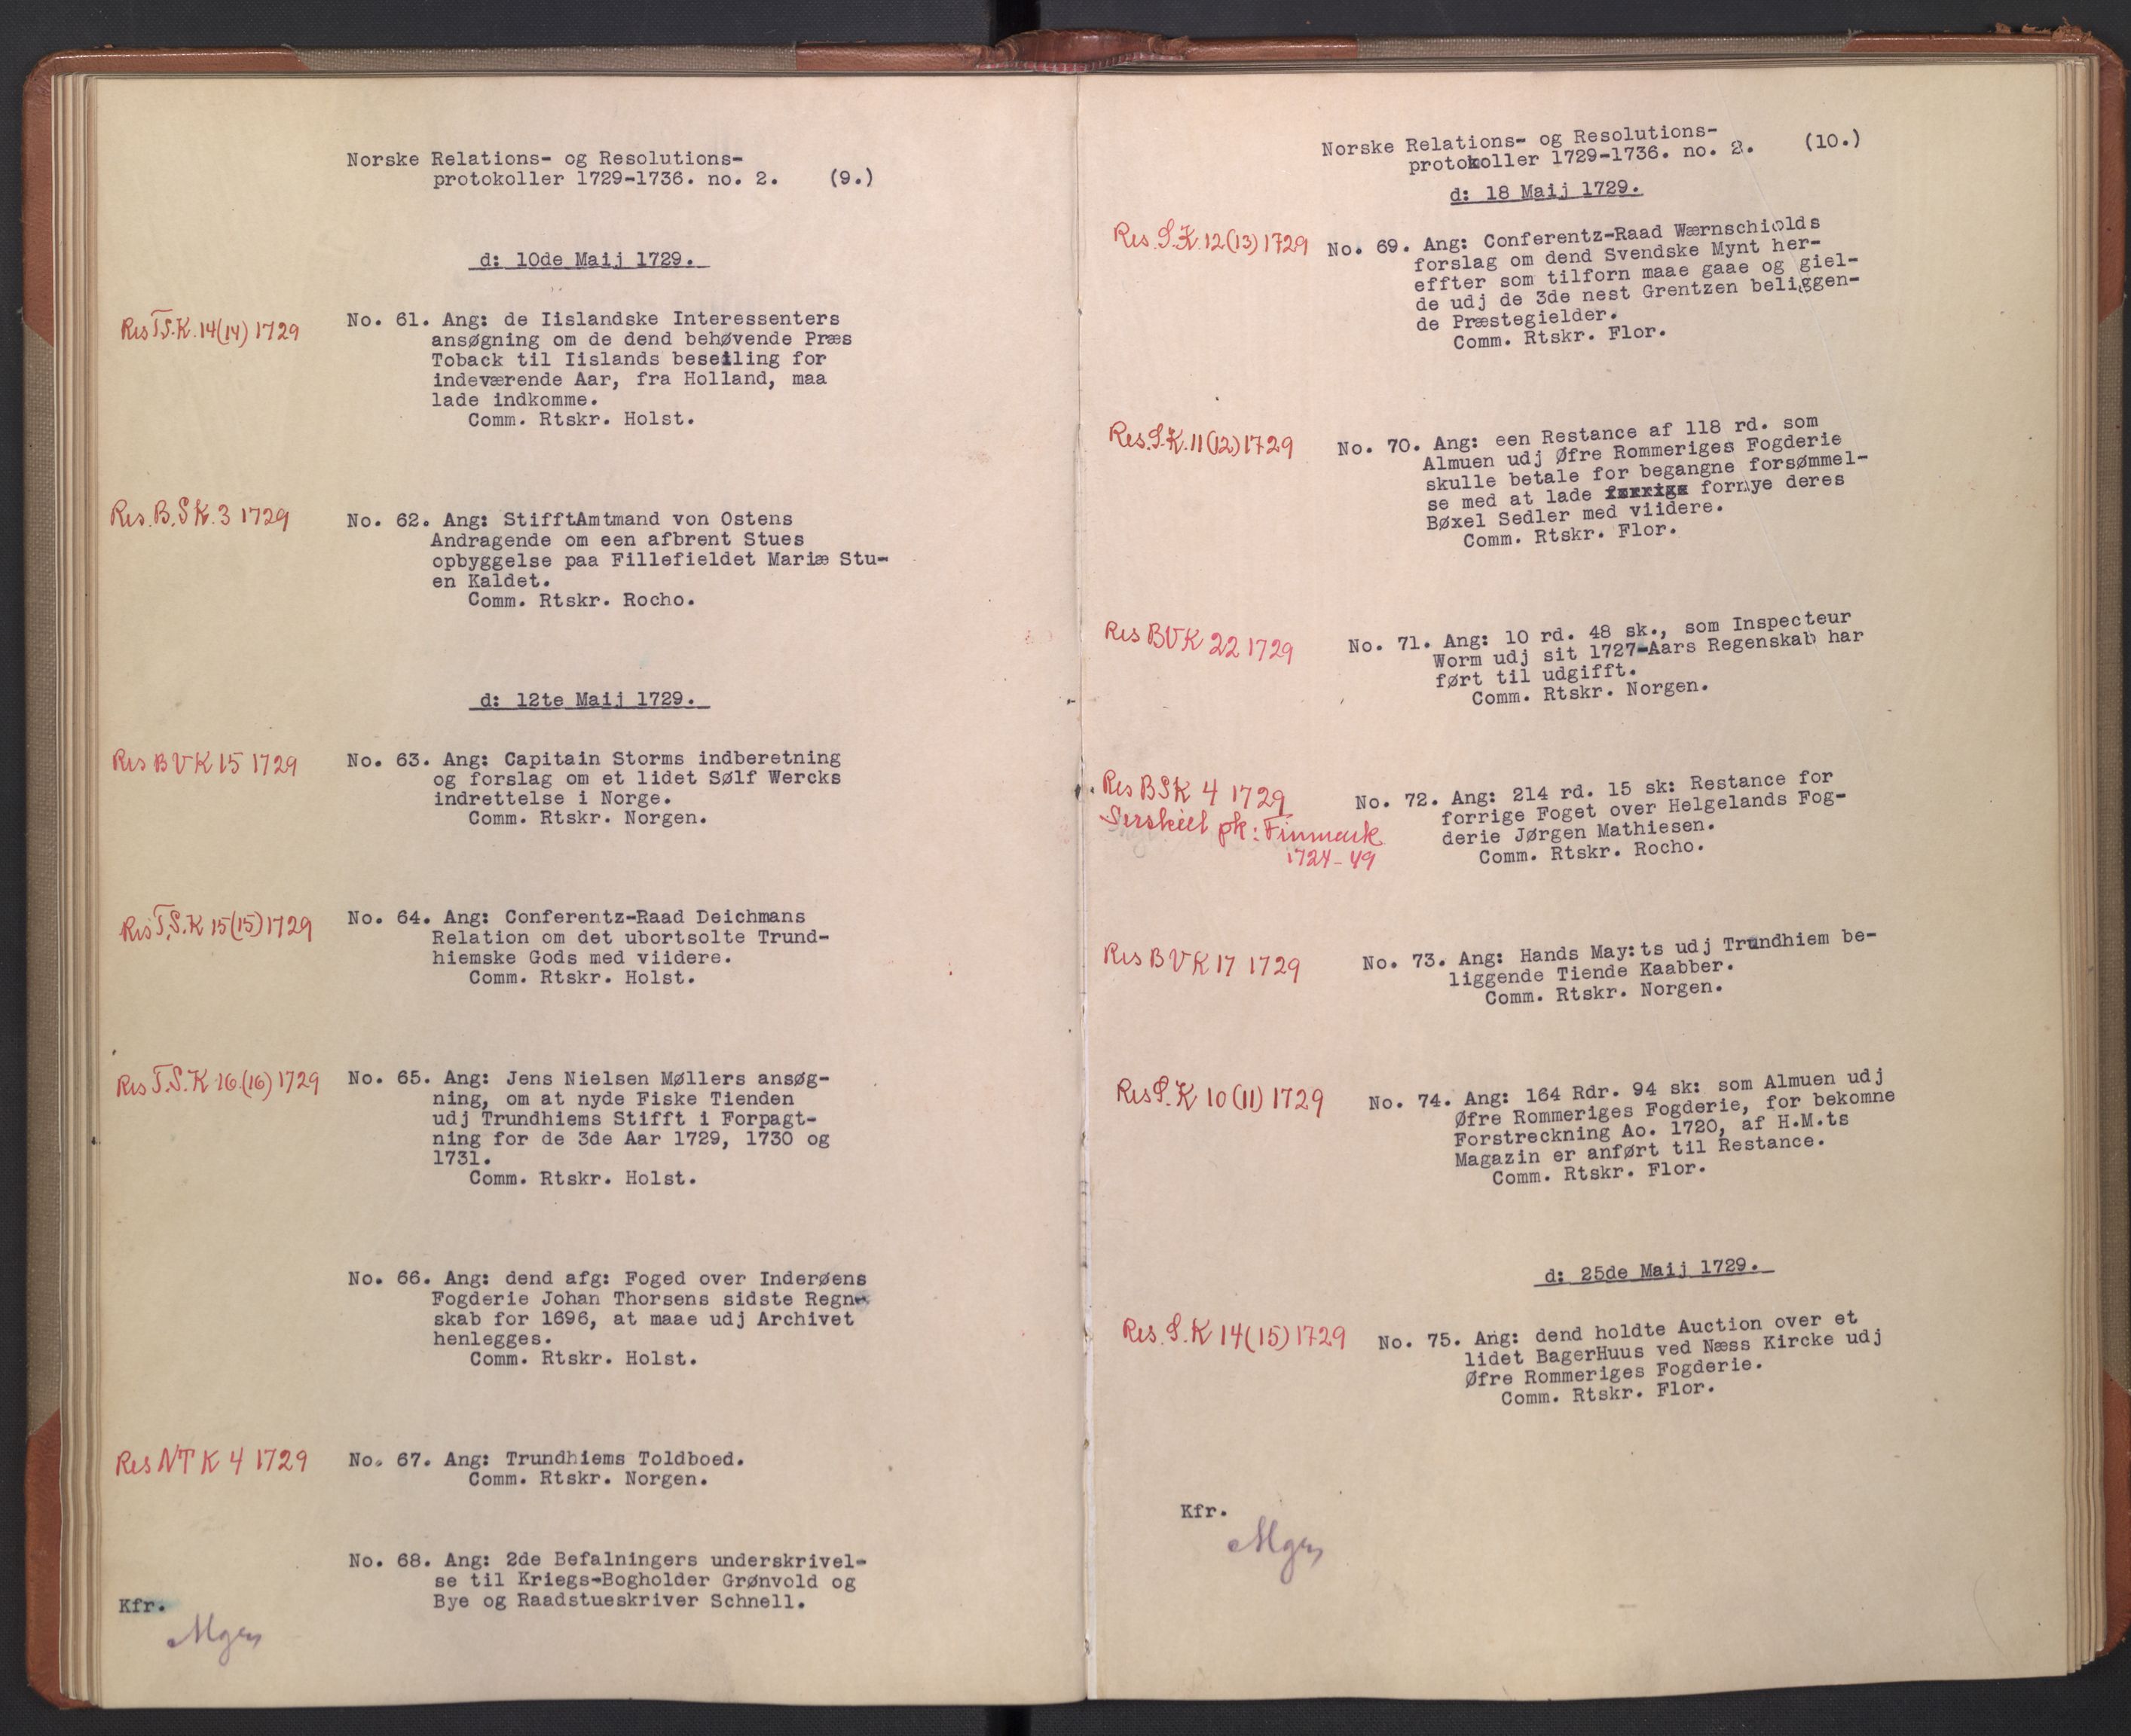 Norske Relations- og Resolutions-
protokoller 1729-1736. no. 2. (9.)
d: 10de Maij 1729.
Res T.S.K. 14(14) 1729
No. 61. Ang: de Iislandske Interessenters
ansøgning om de dend behøvende Præs
Toback til Iislands beseiling for
indeværende Aar, fra Holland, maa
lade indkomme.
Comm. Rtskr. Holst.
Res. B.S.K. 3 1729
No. 62. Ang: StifftAmtmand von Ostens
Andragende om een afbrent Stues
opbyggelse paa Fillefieldet Mariæ Stu-
en Kaldet.
Comm. Rtskr. Rocho.
d: 12te Maij 1729.
Res B V K 15 1729
No. 63. Ang: Capitain Storms indberetning
og forslag om et lidet Sølf Wercks
indrettelse i Norge.
Comm. Rtskr. Norgen.
Res T.S.K 15(15) 1729
No. 64. Ang: Conferentz-Raad Deichmans
Relation om det ubortsolte Trund-
hiemske Gods med viidere.
Comm. Rtskr. Holst.
Res T.S.K 16.(16) 1729
No. 65. Ang: Jens Nielsen Møllers ansøg-
ning, om at nyde Fiske Tienden
udj Trundhiems Stifft i Forpagt-
ning for de 3de Aar 1729, 1730 og
1731.
Comm. Rtskr. Holst.
No. 66. Ang: dend afg: Foged over Inderøens
Fogderie Johan Thorsens sidste Regn-
skab for 1696, at maae udj Archivet
henlegges.
Comm. Rtskr. Holst.
Res NT K 4 1729
No. 67. Ang: Trundhiems Toldboed.
Comm. Rtskr. Norgen.
No. 68. Ang: 2de Befalningers underskrivel-
se til Kriegs-Bogholder Grønvold og
Bye og Raadstueskriver Schnell.
Kfr.
Norske Relations- og Resolutions-
protokoller 1729-1736. no. 2. (10.)
d: 18 Maij 1729.
Res. S.K. 12(13) 1729
No. 69. Ang: Conferentz-Raad Wærnschiolds
forslag om dend Svendske Mynt her-
effter som tilforn maae gaae og giel-
de udj de 3de nest Grentzen beliggen-
de Præstegielder.
Comm. Rtskr. Flor.
Res. S.K. 11(12) 1729
No. 70. Ang: een Restance af 118 rd. som
Almuen udj Øfre Rommeriges Fogderie
skulle betale for begangne forsømmel-
se med at lade fornye deres
Bøxel Sedler med viidere.
Comm. Rtskr. Flor.
Res BVK 22 1729
No. 71. Ang: 10 rd. 48 sk., som Inspecteur
Worm udj sit 1727-Aars Regenskab har
ført til udgifft.
Comm. Rtskr. Norgen.
Res BSK 4 1729
Serskiel pk: Finmark
1724-49
No. 72. Ang: 214 rd. 15 sk: Restance for
forrige Foget over Helgelands Fog-
derie Jørgen Mathiesen.
Comm. Rtskr. Rocho.
Res B V K 17 1729
No. 73. Ang: Hands May:ts udj Trundhiem be-
liggende Tiende Kaabber.
Comm. Rtskr. Norgen.
Res S.K 10(11) 1729
No. 74. Ang: 164 Rdr. 94 sk: som Almuen udj
Øfre Rommeriges Fogderie, for bekomne
Forstreckning Ao. 1720, af H.M.ts
Magazin er anført til Restance.
Comm. Rtskr. Flor.
d: 25de Maij 1729.
Res. S.K 14(15) 1729
No. 75. Ang: dend holdte Auction over et
lidet BagerHuus ved Næss Kircke udj
Øfre Rommeriges Fogderie.
Comm. Rtskr. Flor.
Kfr.